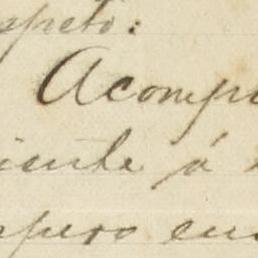 speto:
Acompa
iente á
spero en